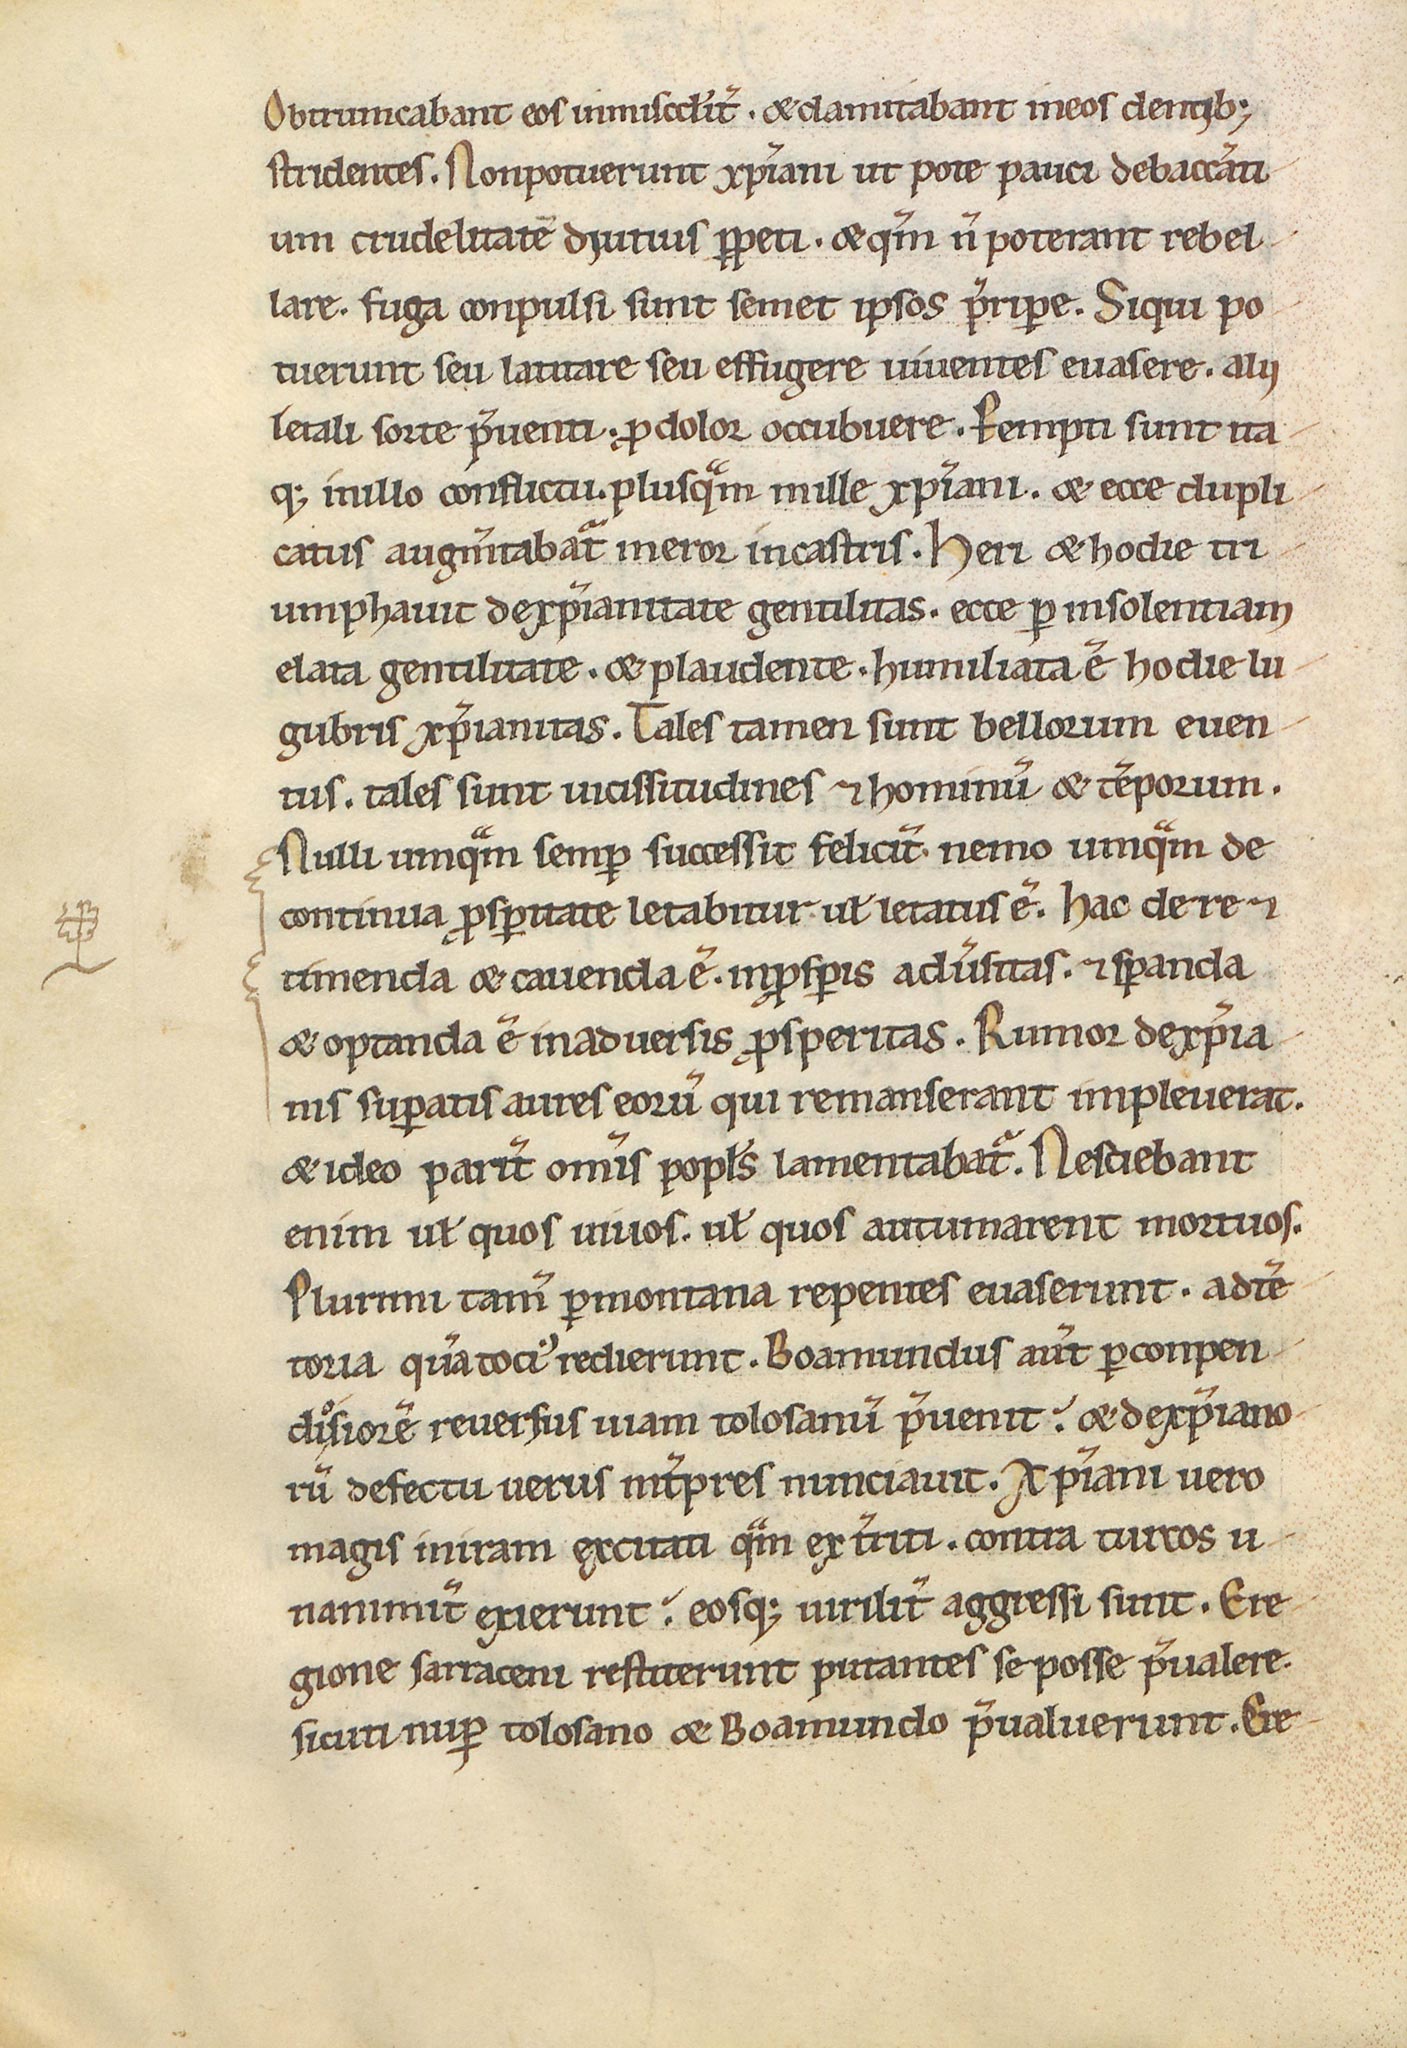 Obtruncabant eos inmiscdit̉. & clamitabant ineos dentib;
stridentes. Nonpotuerunt xp̃iani ut pote pauci debacc̃ati
um crudelitatẽ diutius ꝑpeti. & qm̃ ñ poterant rebel
lare. fuga conpulsi sunt semet ipsos p̃ripe. Siqui po
tuerunt seu latitare seu effugere uiuentes euasere. alij
letali sorte p̃uenti. ꝓdolor occubuere. Perempti sunt ita
q; inillo conflictu. plusqᵃm mille xp̃iani. & ecce dupli
catus augm̃tabat᷑ meror incastris. Heri & hodie tri
umphauit dexp̃ianitate gentilitas. ecce ꝑ insolentiam
elata gentilitate. & plaudente. humiliata ẽ hodie lu
gubris xp̃ianitas. Tales tamen sunt bellorum euen
tus. tales sunt uicissitudines ⁊ hominũ & tẽporum.
Nulli umqᵃm semꝑ successit felicit̉. nemo umqᵃm de
continua ꝓsꝑitate letabitur uł letatus ẽ. Hac de re ⁊
timenda & cauenda ẽ. inꝓsꝑis adũsitas. ⁊ sꝑanda
& optanda ẽ inaduersis ꝓsperitas. Rumor dexp̃ia
nis suꝑatis aures eorũ qui remanserant impleuerat.
& ideo parit̉ om̃is popl̃s lamentabat᷑. Nesciebant
enim uł quos uiuos. uł quos autumarent mortuos.
Plurimi tam̃ ꝑmontana repentes euaserunt. adtẽ
toria qũatociꝰ redierunt. Boamundus aut̃ ꝑconpen
diosiorẽ reuersus uiam tolosanũ p̃uenit. & dexp̃iano
rũ defectu uerus int̃pres nunciauit. Xp̃iani uero
magis iniram excitati qᵃm ext̃riti. contra turcos u
nanimit̉ exierunt. eosq; uirilit̉ aggressi sunt. Ere
gione sarraceni restiterunt putantes se posse p̃ualere.
sicuti nuꝑ tolosano & Boamundo p̃ualuerunt. Ere